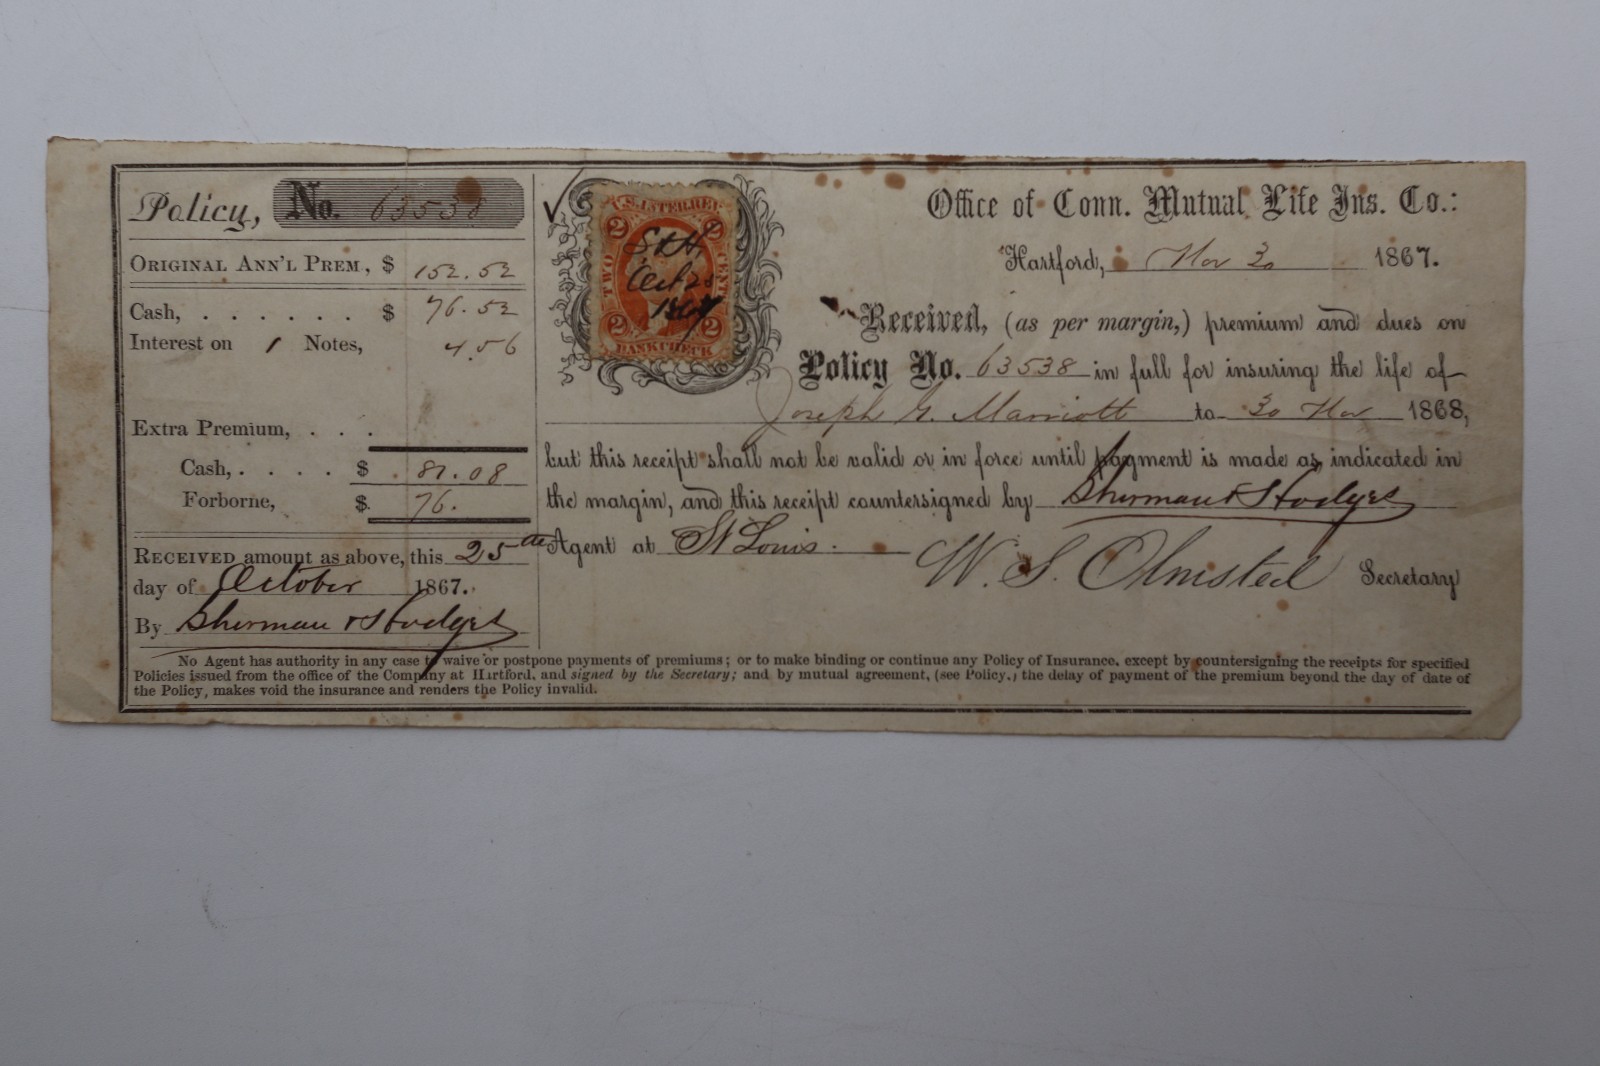 Policy, No. 63538
ORIGINAL ANN'L PREM, $ 152.52
Cash, . . . . . . . $ 76.52
Interest on 1 Notes, 4.56
Extra Premium, . . .
Cash, . . . . $ 81.08
Forborne, $ 76.
RECEIVED amount as above, this 25th
day of October 1867.
By Sherman & Hodges
U.S. INTER. REV.
2 2
TWO CENTS
S & H
Oct 25
1867
2 2
BANK CHECK
Office of Conn. Mutual Life Ins. Co.:
Hartford, Nov 30 1867.
Received, (as per margin,) premium and dues on
Policy No. 63538 in full for insuring the life of
Joseph G. Marriott to 30 Nov 1868,
but this receipt shall not be valid or in force until payment is made as indicated in
the margin, and this receipt countersigned by Sherman & Hodges
Agent at St Louis. W. S. Olmsted Secretary
No Agent has authority in any case to waive or postpone payments of premiums; or to make binding or continue any Policy of Insurance, except by countersigning the receipts for specified
Policies issued from the office of the Company at Hartford, and signed by the Secretary; and by mutual agreement, (see Policy,) the delay of payment of the premium beyond the day of date of
the Policy, makes void the insurance and renders the Policy invalid.